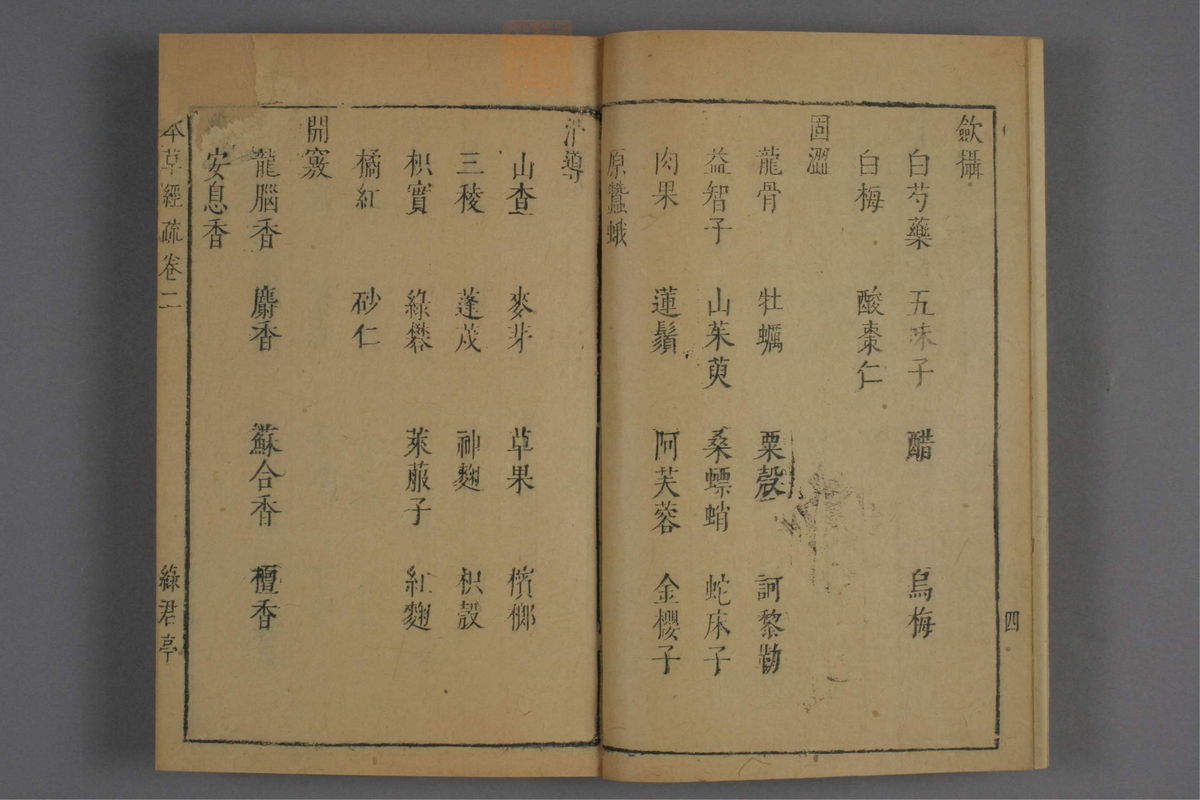 歛攝
白芍藥 五味子 醋 烏梅
白梅 酸棗仁
固澀
龍骨 牡蠣 粟殼 訶黎勒
益智子 山茱萸 桑螵蛸 蛇床子
肉果 蓮鬚 阿芙蓉 金櫻子
原蠶蛾
四
消導
山查 麥芽 草果 檳榔
三稜 蓬茂 神麴 枳殼
枳實 綠礬 萊菔子 紅麴
橘紅 砂仁
開竅
龍腦香 麝香 蘇合香 檀香
安息香
本草經疏卷二 綠君亭